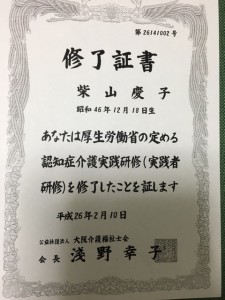 第26141002号
修了証書
柴山慶子
昭和46年12月18日生
あなたは厚生労働省の定める
認知症介護実践研修(実践者
研修)を修了したことを証します
平成26年2月10日
公益社団法人 大阪介護福祉士会
会長 淺野幸子